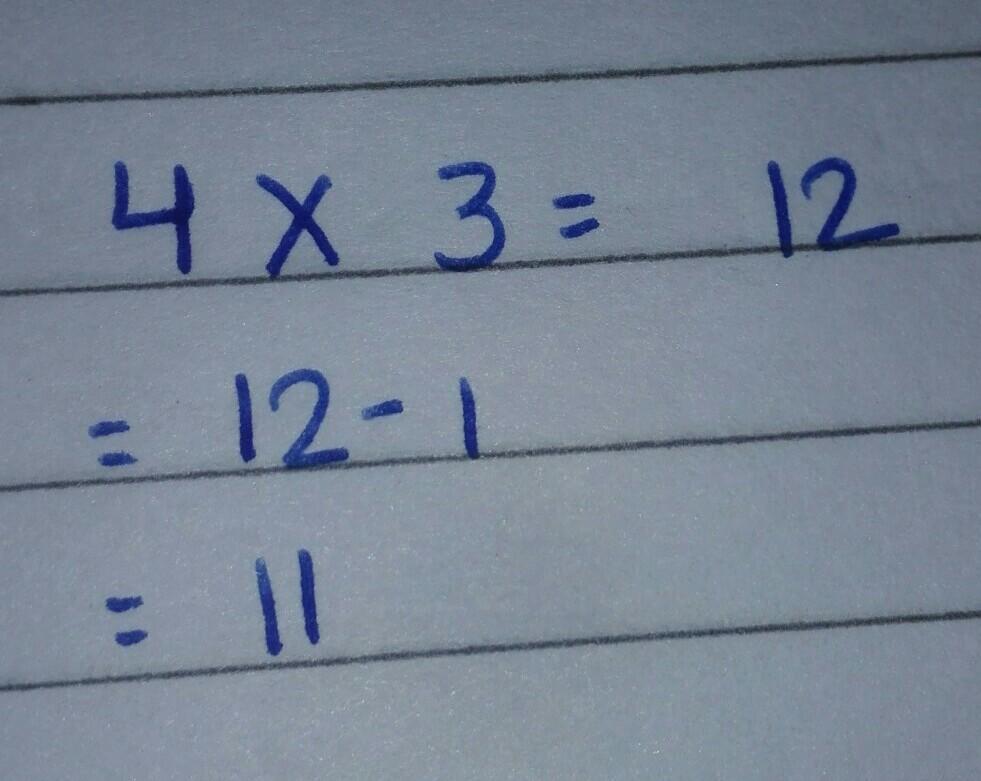 4 × 3 = 12
= 12 - 1
= 11